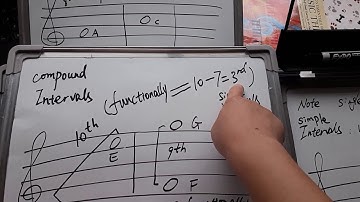 A
C
compound
Intervals
(functionally = 10-7=3rd)
10th
E
G
9th
F
Note
simple
Intervals